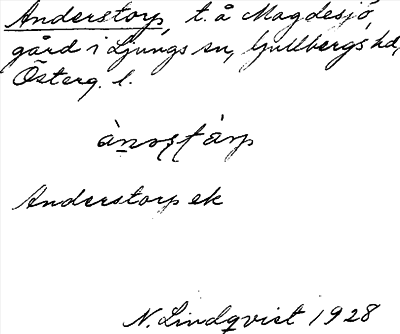 Anderstorp, t. å Magdesjö,
gård i Ljungs sn, Gullbergs hd,
Österg. l.
Anderstorp ek
N. Lindqvist 1928